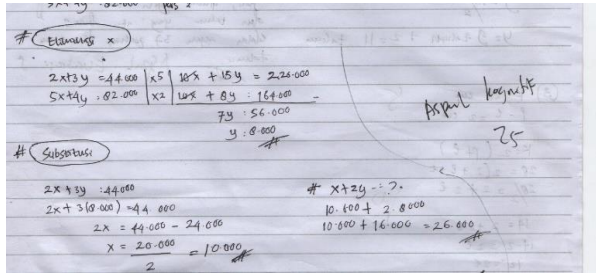 # Eliminasi x
2x+3y = 44000 | x5 | 10x + 15y = 220.000
5x+4y : 82.000 | x2 | 10x + 8y : 164.000 -
7y : 56.000
y : 8.000
Aspek kognitif
25
# Substitusi
2x + 3y : 44.000
2x + 3(8.000) = 44.000
2x = 44.000 - 24.000
x = 20.000 = 10.000
2
# x+2y = ?
10.000 + 2.8000
10.000 + 16.000 = 26.000